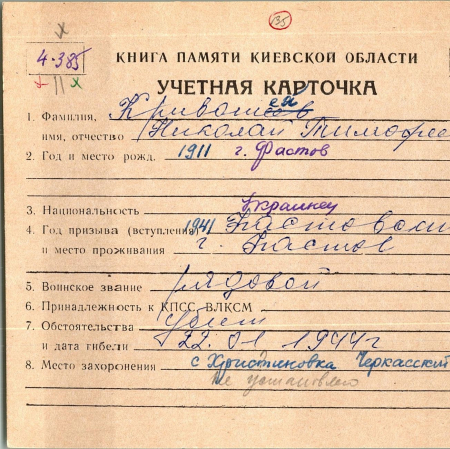 135
4-385
х
II х
КНИГА ПАМЯТИ КИЕВСКОЙ ОБЛАСТИ
УЧЕТНАЯ КАРТОЧКА
1. Фамилия,
имя, отчество Николай Тимофее
2. Год и место рожд. 1911 г. Фастов
3. Национальность Украинец
4. Год призыва (вступления) 1941 Фастовским
и место проживания г. Фастов
5. Воинское звание рядовой
6. Принадлежность к КПСС, ВЛКСМ
7. Обстоятельства Убит
и дата гибели 22.01 1944г
8. Место захоронения с Христиновка Черкасский
Не установлено